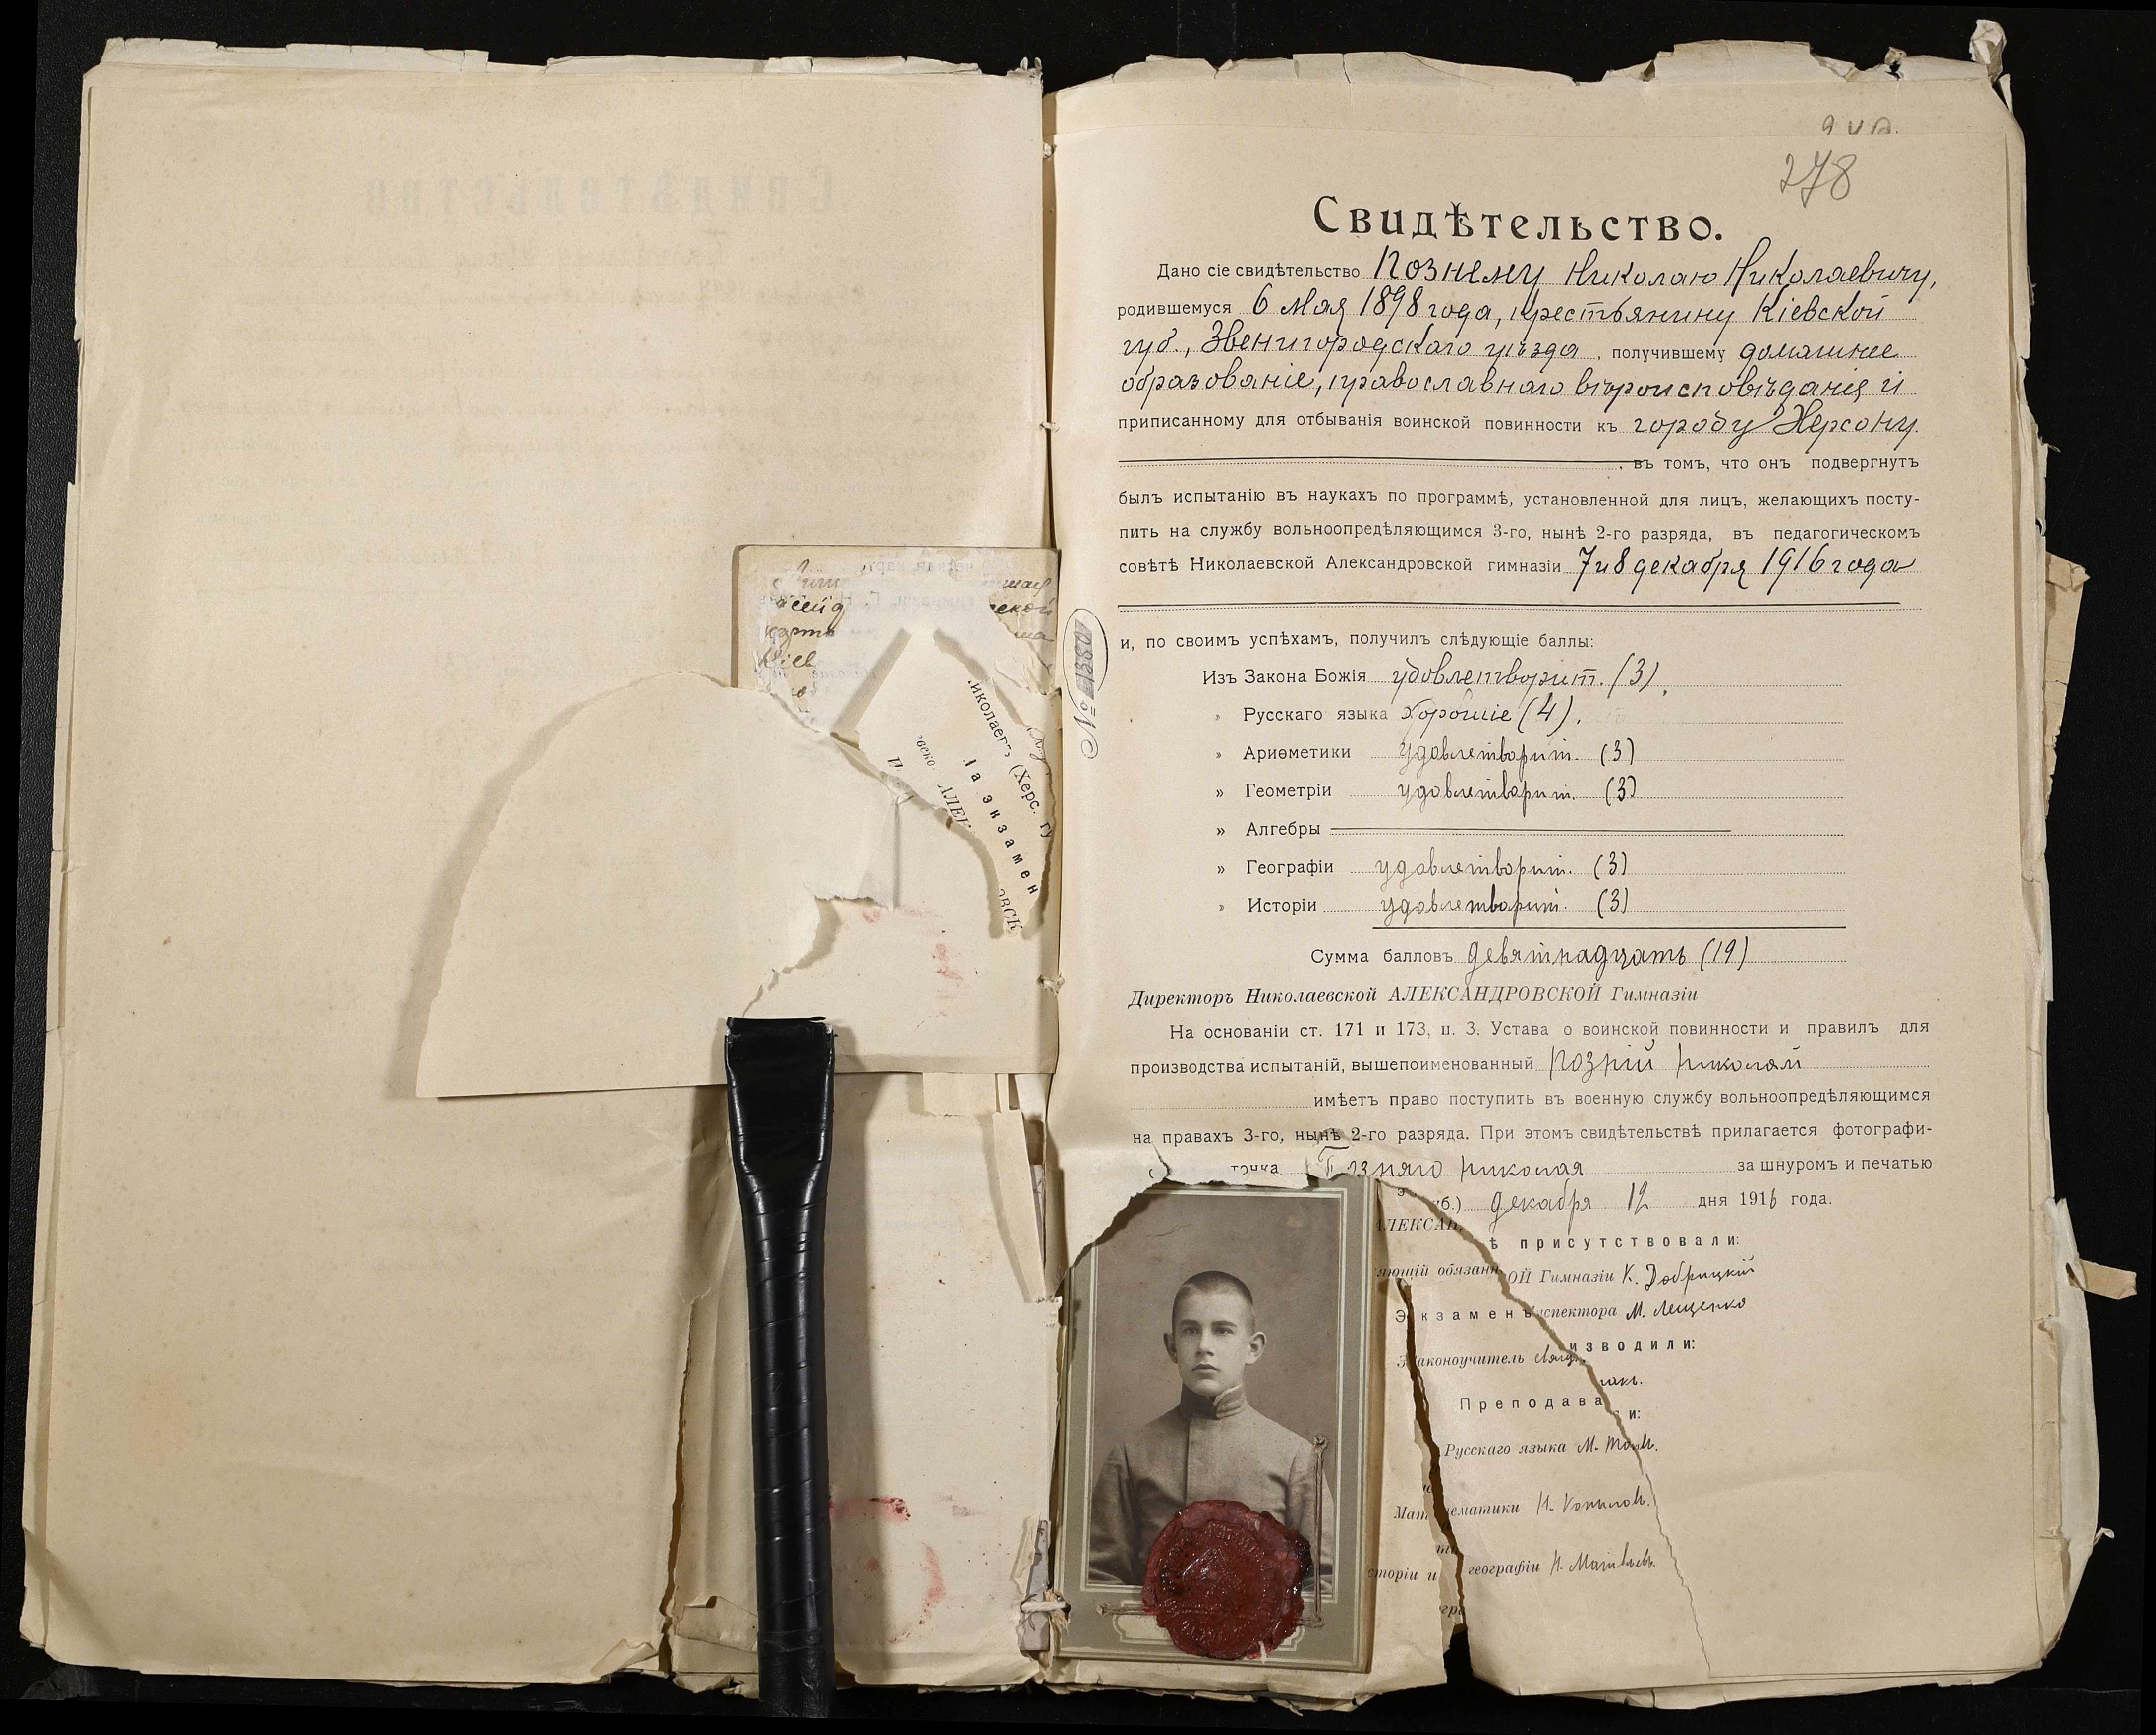 278
Свидѣтельство.
Дано сіе свидѣтельство Познему Николаю Николаевичу,
родившемуся 6 мая 1898 года, крестьянину Кіевской
губ., Звенигородскаго уѣзда, получившему домашнее
образованіе, православнаго вѣроисповѣданія и
приписанному для отбыванія воинской повинности къ городу Херсону
, въ томъ, что онъ подвергнутъ
былъ испытанію въ наукахъ по программѣ, установленной для лицъ, желающихъ посту-
пить на службу вольноопредѣляющимся 3-го, нынѣ 2-го разряда, въ педагогическомъ
совѣтѣ Николаевской Александровской гимназіи 7 и 8 декабря 1916 года
и, по своимъ успѣхамъ, получилъ слѣдующіе баллы:
Изъ Закона Божія удовлетворит. (3).
» Русскаго языка хорошіе (4).
» Ариѳметики удовлетворит. (3)
» Геометріи удовлетворит. (3)
» Алгебры
» Географіи удовлетворит. (3)
» Исторіи удовлетворит. (3)
Сумма балловъ девятнадцать (19)
Директоръ Николаевской АЛЕКСАНДРОВСКОЙ Гимназіи
На основаніи ст. 171 и 173, п. 3. Устава о воинской повинности и правилъ для
производства испытаній, вышепоименованный Позній Николай
имѣетъ право поступить въ военную службу вольноопредѣляющимся
на правахъ 3-го, нынѣ 2-го разряда. При этомъ свидѣтельствѣ прилагается фотографи-
точка Позняго Николая за шнуромъ и печатью
уб.) декабря 12 дня 1916 года.
АЛЕКСАН
ѣ присутствовали:
яющій обязанн ОЙ Гимназіи К. Добрицкій
Экзамен нспектора М. Лещенко
изводили:
Законоучитель свящ.
Преподава и:
Русскаго языка М.
Математики Н.
сторіи и географіи Н. Матвѣевъ.
№
иколаевъ, (Херс. гу
а экзамен
АЛЕК
ОВСК